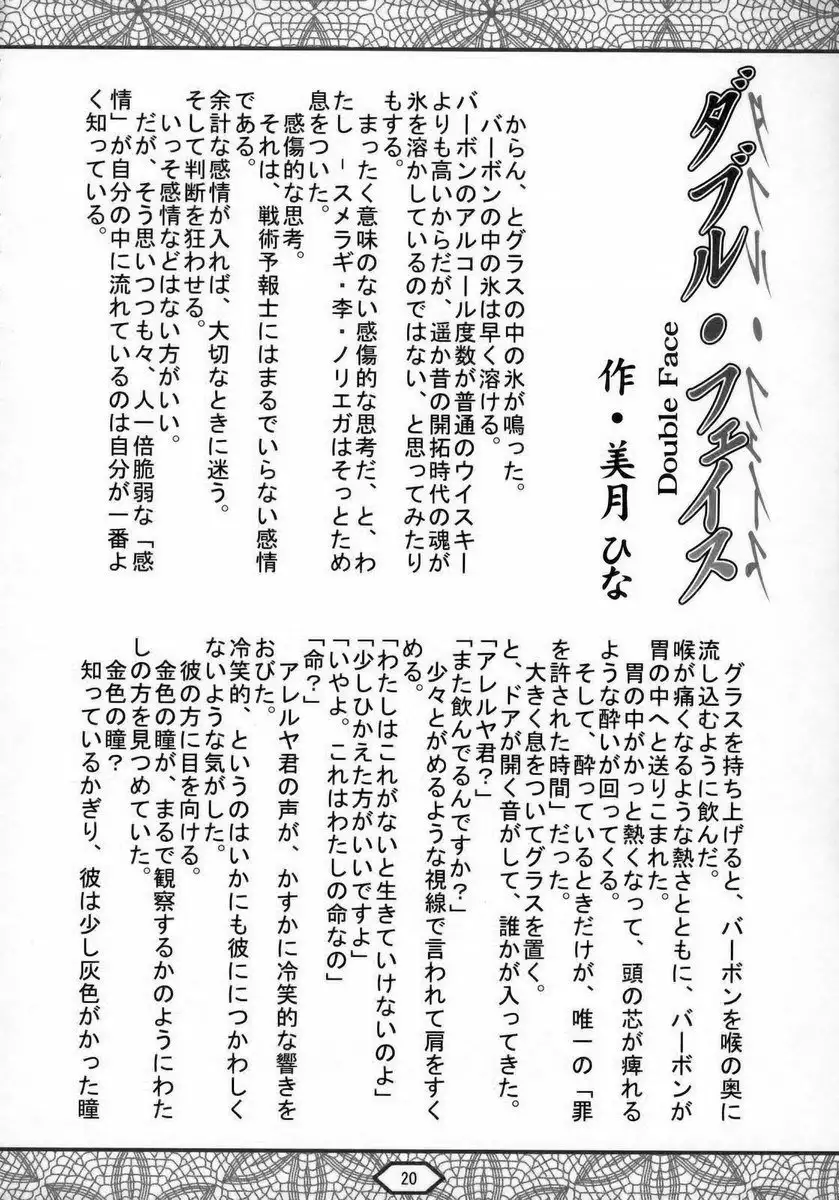 ダブル・フェイス
Double Face
作・美月 ひな
からん、とグラスの中の氷が鳴った。
バーボンの中の氷は早く溶ける。
バーボンのアルコール度数が普通のウイスキー
よりも高いからだが、遥か昔の開拓時代の魂が
氷を溶かしているのではない、と思ってみたり
もする。
まったく意味のない感傷的な思考だ、と、わ
たし－スメラギ・李・ノリエガはそっとため
息をついた。
感傷的な思考。
それは、戦術予報士にはまるでいらない感情
である。
余計な感情が入れば、大切なときに迷う。
そして判断を狂わせる。
いっそ感情などはない方がいい。
だが、そう思いつつも々、人一倍脆弱な「感
情」が自分の中に流れているのは自分が一番よ
く知っている。
グラスを持ち上げると、バーボンを喉の奥に
流し込むように飲んだ。
喉が痛くなるような熱さとともに、バーボンが
胃の中へと送りこまれた。
胃の中がかっと熱くなって、頭の芯が痺れる
ような酔いが回ってくる。
そして、酔っているときだけが、唯一の「罪
を許された時間」だった。
大きく息をついてグラスを置く。
と、ドアが開く音がして、誰かが入ってきた。
「アレルヤ君？」
「また飲んでるんですか？」
少々とがめるような視線で言われて肩をすく
める。
「わたしはこれがないと生きていけないのよ」
「少しひかえた方がいいですよ」
「いやよ。これはわたしの命なの」
「命？」
アレルヤ君の声が、かすかに冷笑的な響きを
おびた。
冷笑的、というのはいかにも彼ににつかわしく
ないような気がした。
彼の方に目を向ける。
金色の瞳が、まるで観察するかのようにわた
しの方を見つめていた。
金色の瞳？
知っているかぎり、彼は少し灰色がかった瞳
20